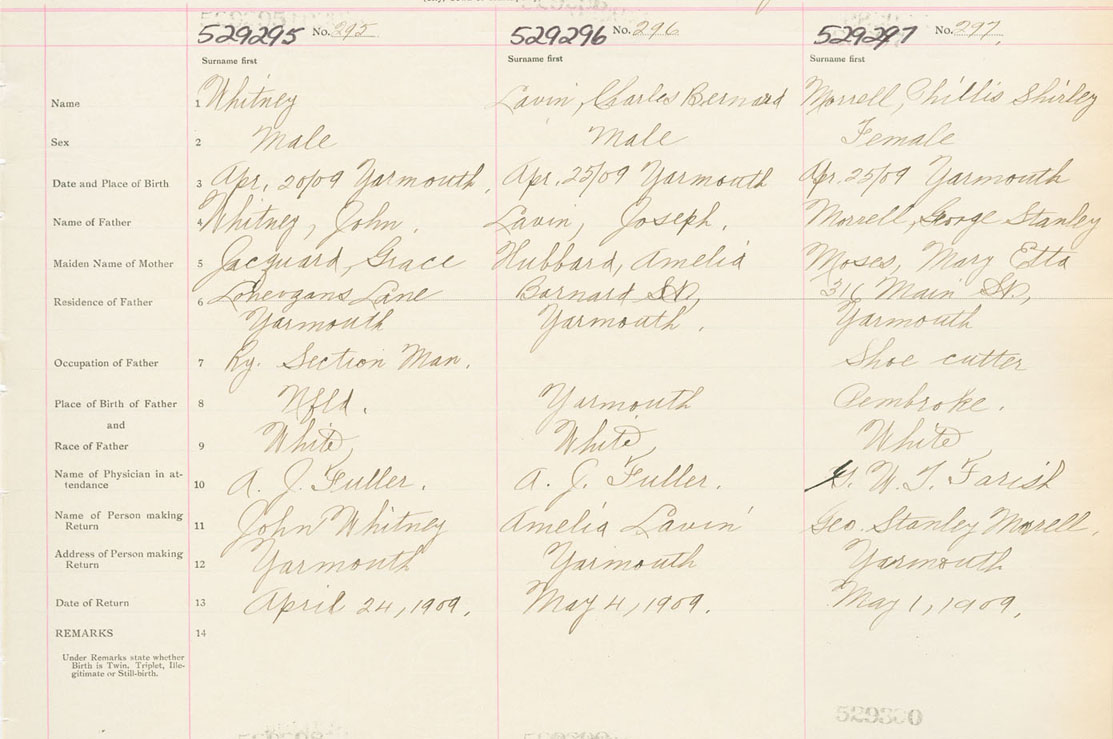 529295 No. 295 529296 No. 296 529297 No. 297
Surname first Surname first Surname first
Name 1 Whitney Lavin, Charles Bernard Morrell, Phillis Shirley
Sex 2 Male Male Female
Date and Place of Birth 3 Apr. 20/09 Yarmouth, Apr. 25/09 Yarmouth Apr. 25/09 Yarmouth
Name of Father 4 Whitney, John. Lavin, Joseph. Morrell, George Stanley
Maiden Name of Mother 5 Jacquard, Grace Hubbard, Amelia Moses, Mary Etta
Residence of Father 6 Lane Barnard St, 316 Main St,
Yarmouth Yarmouth. Yarmouth
Occupation of Father 7 Ry. Section Man. Shoe cutter
Place of Birth of Father 8 Nfld. Yarmouth Pembroke.
and
Race of Father 9 White, White, White
Name of Physician in at-
tendance 10 A. J. Fuller. A. J. Fuller. G. W. T. Farish
Name of Person making
Return 11 John Whitney Amelia Lavin Geo. Stanley Morrell.
Address of Person making
Return 12 Yarmouth Yarmouth Yarmouth
Date of Return 13 April 24, 1909. May 4, 1909. May 1, 1909.
REMARKS 14
Under Remarks state whether
Birth is Twin, Triplet, Ille-
gitimate or Still-birth.
529300